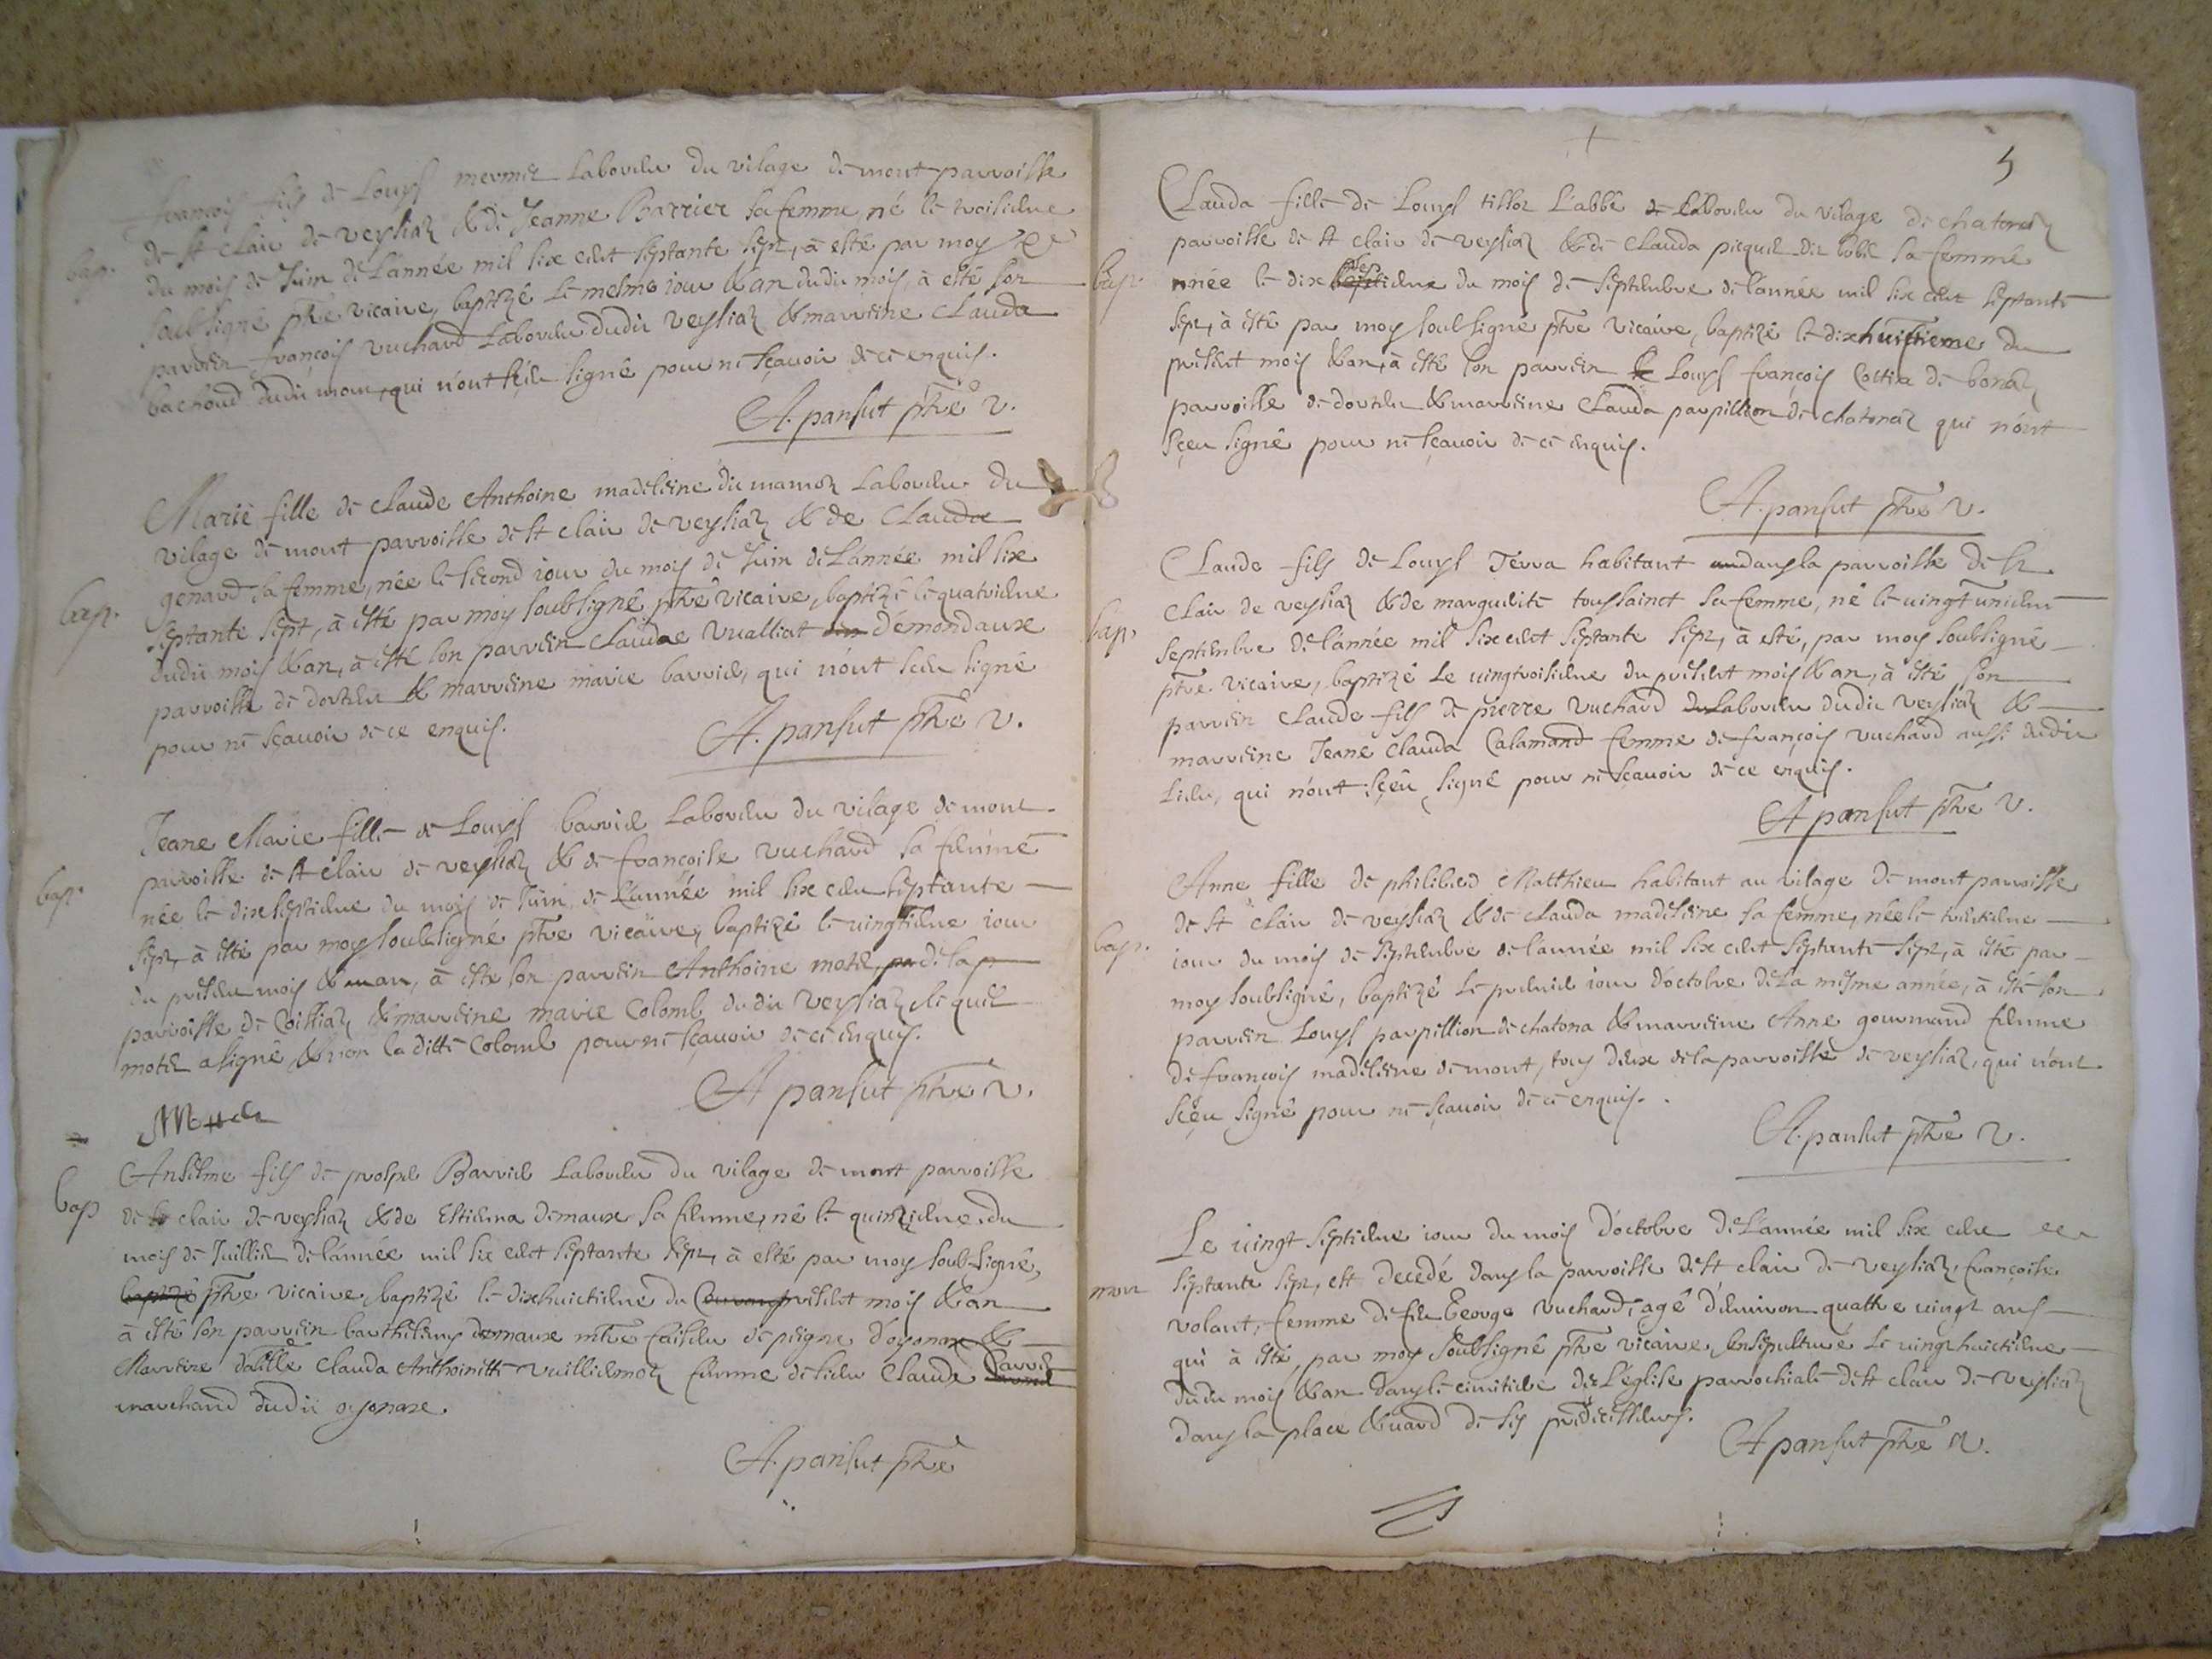 françois fils de Louys mermet Laboureur du vilage de mont parroisse
bap. de st clair de veyziaz & de Jeanne Barrier sa femme, né le troisieme
du mois de Juin de L'année mil six cent septante sept, à esté par moy
soubsigné ptre vicaire, baptizé le mesme iour & an dudit mois, à esté son
parrein françois vuchard Laboureur dudit veyziaz & marreine Clauda
bachoud dudit mont, qui n'ont sçeu signé pour ne sçavoir de ce enquis.
A. pansut ptre v.
Marie fille de Claude Anthoine madeleine dit mamoz Laboureur du
vilage de mont parroisse de st clair de veyziaz & de Clauda
bap. genard sa femme, née le second iour du mois de Juin de L'année mil six
septante sept, à esté par moy soubsigné ptre vicaire, baptizé le quatrieme
dudit mois & an, à esté son parrein Claude vualliat démondaux
parroisse de dorten & marreine marie barrier, qui n'ont sceu signé
pour ne sçavoir de ce enquis.
A. pansut ptre v.
Jeane Marie fille de Louys barriel Laboureur du vilage de mont
parroisse de st clair de veyziaz & de françoise vuchard sa femme
bap. née le dixseptieme du mois de Juin de L'année mil six cent septante
sept, à esté par moy soubsigné ptre vicaire, baptizé le vingtieme iour
du present mois & an, à esté son parrein Anthoine motel, de la
parroisse de Coissiaz & marreine marie Colomb dudit veyziaz, le quel
motel a signé & non la ditte Colomb pour ne sçavoir de ce enquis.
A pansut ptre v.
Motel
Anselme fils de prosper Barriel Laboureur du vilage de mont parroisse
bap de st clair de veyziaz & de Estienna demaux sa femme, né le quinzieme du
mois de Juillet de l'année mil six cent septante sept, à esté par moy soubsigné,
baptizé ptre vicaire, baptizé le dixhuictieme du present mois & an
à esté son parrein barthelemy demaux mtre faiseur de peigne d'oyonax &
Marreine Clauda Anthoinette vuilliermoz femme de sieur Claude
marchand dudit oyonax.
A. pansut ptre
5
Clauda fille de Louys tissot L'abbé Laboureur du vilage de chatonaz
parroisse de st clair de veyziaz & de Clauda picquet dit bobel sa femme
bap. née le dix septieme du mois de Septembre de l'année mil six cent septante
sept, à esté par moy soubsigné ptre vicaire, baptizé le dixhuictieme du
present mois & an, à esté son parrein Louys françois Cottin de bonaz
parroisse de dorten & marreine Clauda parpillion de chatonaz qui n'ont
sçeu signé pour ne sçavoir de ce enquis.
A. pansut ptre v.
Claude fils de Louys Terra habitant dans la parroisse de st
clair de veyziaz & de marguerite toussainct sa femme, né le vingtunieme
bap. Septembre de l'année mil six cent septante sept, à esté, par moy soubsigné
ptre vicaire, baptizé Le vingtroisieme du present mois & an, à esté son
parrein Claude fils de pierre vuchard Laboureur dudit veyziaz &
marreine Jeane Clauda Calamand femme de françois vuchard aussi dudit
Lieu, qui n'ont sçeu signé pour ne sçavoir de ce enquis.
A pansut ptre v.
Anne fille de philibert Matthieu habitant au vilage de mont parroisse
de st clair de veyziaz & de Clauda madeleine sa femme, née le trentieme
bap. iour du mois de Septembre de l'année mil six cent septante sept, à esté par
moy soubsigné, baptizé le premier iour d'octobre de la mesme année, à esté son
parrein Louys parpillion de chatona & marreine Anne gourmand femme
de françois madeleine de mont, tous deux de la parroisse de veyziaz, qui n'ont
sçeu signé pour ne sçavoir de ce enquis.
A. pansut ptre v.
Le vingt septieme iour du mois d'octobre de L'année mil six cent
mor septante sept, est decedé dans la parroisse de st clair de veyziaz, françoise
volant, femme de feu George vuchard, agé d'environ quattre vingt ans
qui à esté, par moy soubsigné ptre vicaire, ensepulturé le vingthuictieme
dudit mois & an dans le cimitiere de L'eglise parrochiale de st clair de veyziaz
dans la place & uard de ses predecesseurs.
A pansut ptre v.